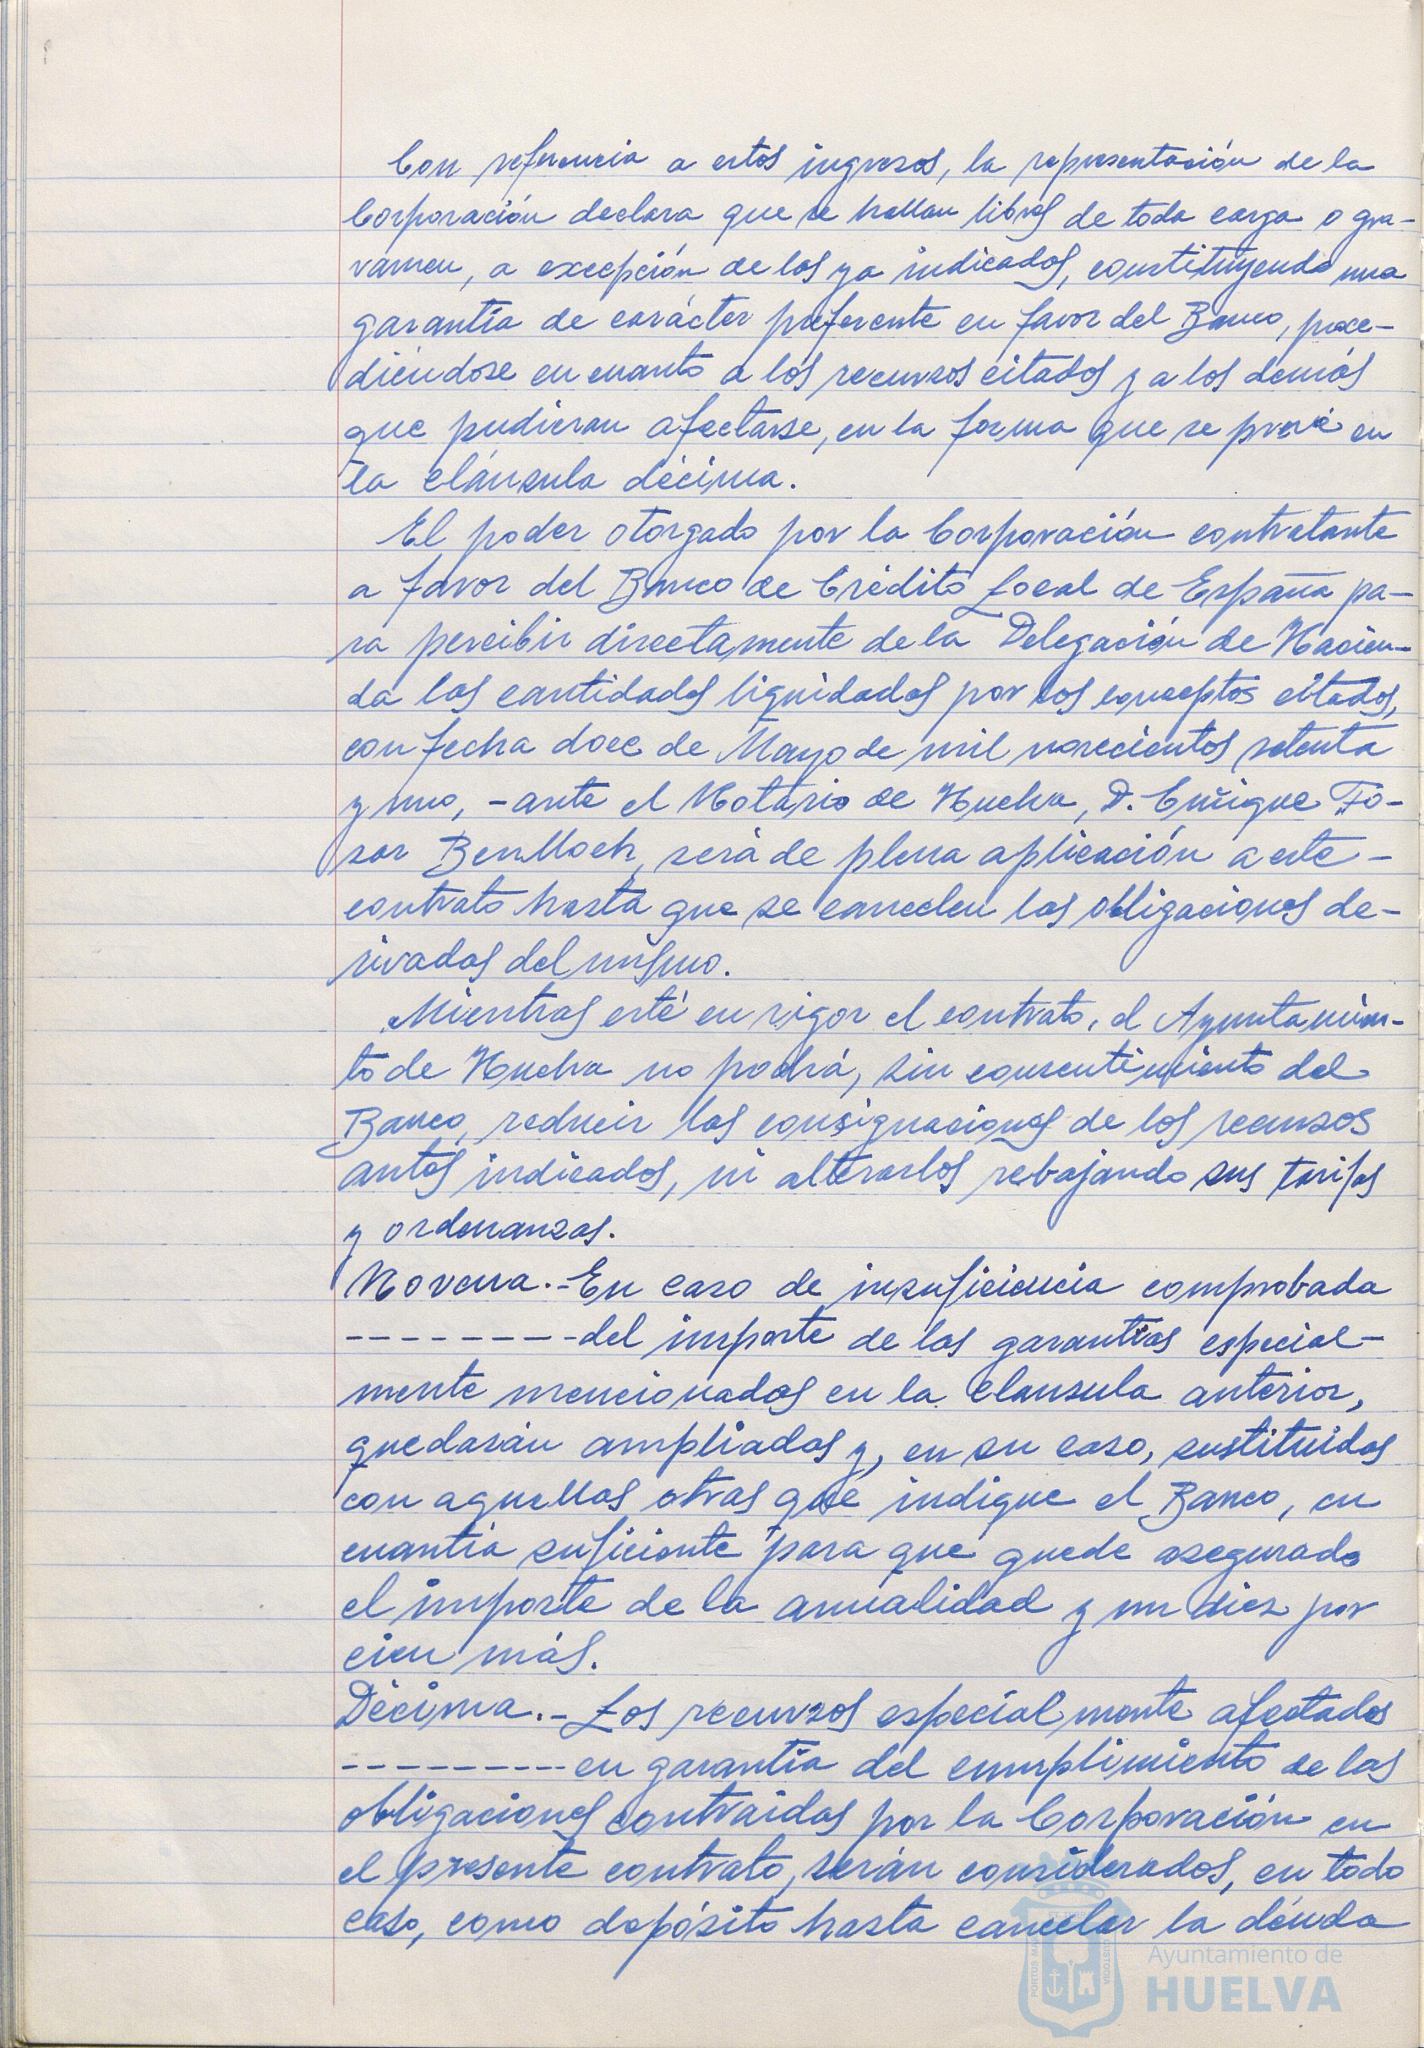 Con referencia a estos ingresos, la representación de la
Corporación declara que se hallan libres de toda carga o gra-
vamen, a excepción de los ya indicados, constituyendo una
garantía de carácter preferente en favor del Banco, proce-
diéndose en cuanto a los recursos citados y a los demás
que pudieran afectarse, en la forma que se prevé en
la cláusula décima.
El poder otorgado por la Corporación contratante
a favor del Banco de Crédito Local de España pa-
ra percibir directamente de la Delegación de Hacien-
da las cantidades liquidadas por los conceptos citados,
con fecha doce de Mayo de mil novecientos setenta
y uno, - ante el Notario de Huelva, D. Enrique Fo-
sar Benlloch, será de plena aplicación a este -
contrato hasta que se cancelen las obligaciones de-
rivadas del mismo.
Mientras esté en vigor el contrato, el Ayuntamien-
to de Huelva no podrá, sin consentimiento del
Banco, reducir las consignaciones de los recursos
antes indicados, ni alterarlos rebajando sus tarifas
y ordenanzas.
Novena.- En caso de insuficiencia comprobada
--------- del importe de las garantías especial-
mente mencionadas en la clausula anterior,
quedarán ampliadas y, en su caso, sustituidas
con aquellas otras que indique el Banco, en
cuantía suficiente para que quede asegurado
el importe de la anualidad y un diez por
cien más.
Décima.- Los recursos especialmente afectados
---------- en garantía del cumplimiento de las
obligaciones contraídas por la Corporación en
el presente contrato, serán considerados, en todo
caso, como depósito hasta cancelar la deuda
PORTUS MARIS
ET TERRAE
CUSTODIA
Ayuntamiento de
HUELVA